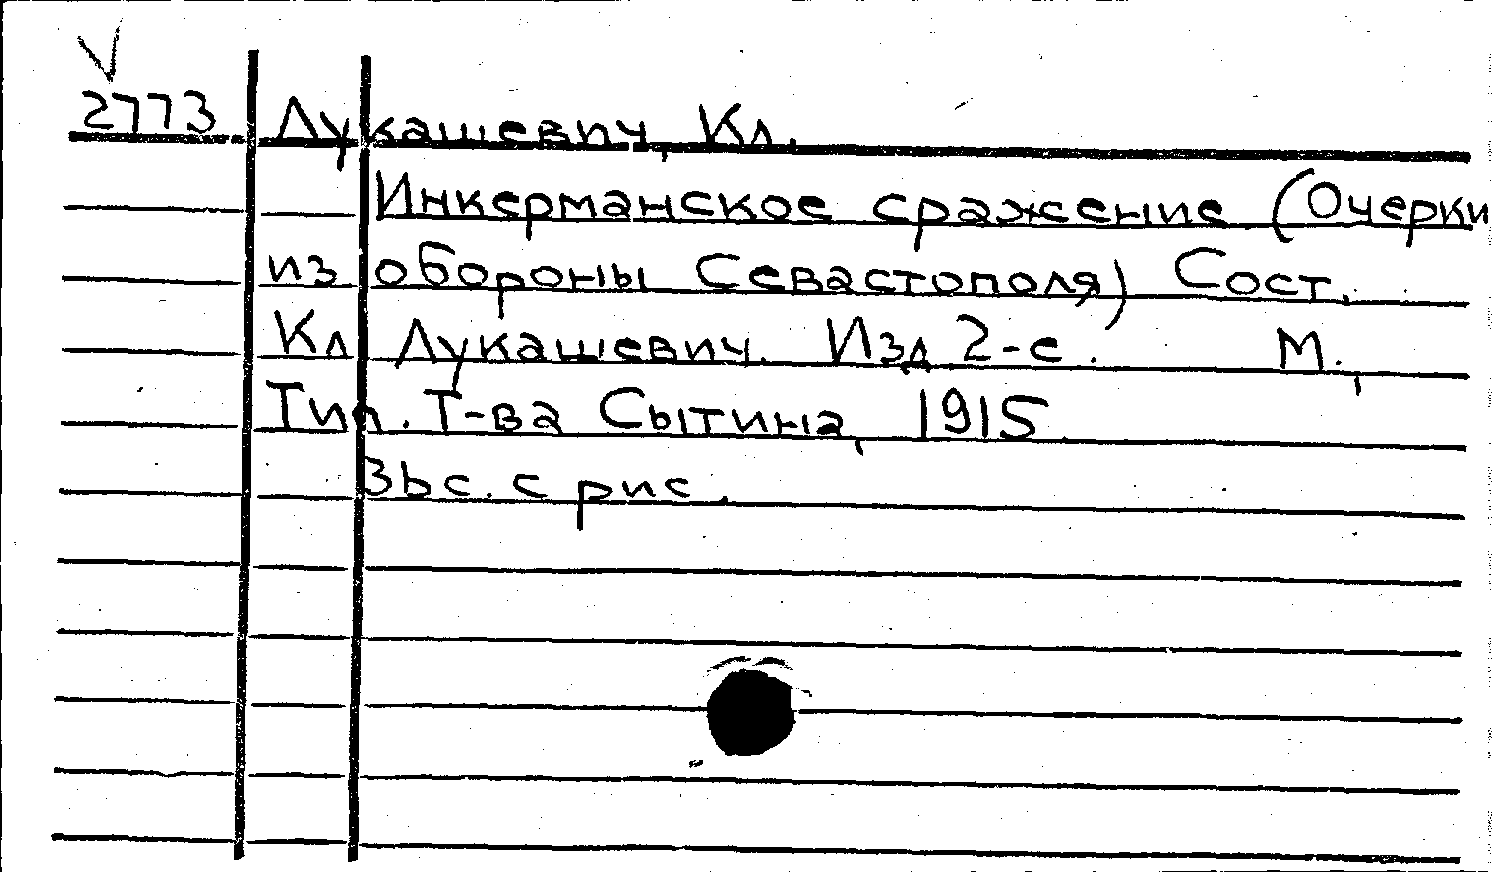 2773 Лукашевич, Кл.
Инкерманское сражение (Очерки
из обороны Севастополя) Сост.
Кл Лукашевич. Изд 2-е. М.,
Тип. Т-ва Сытина, 1915
36с. с рис.